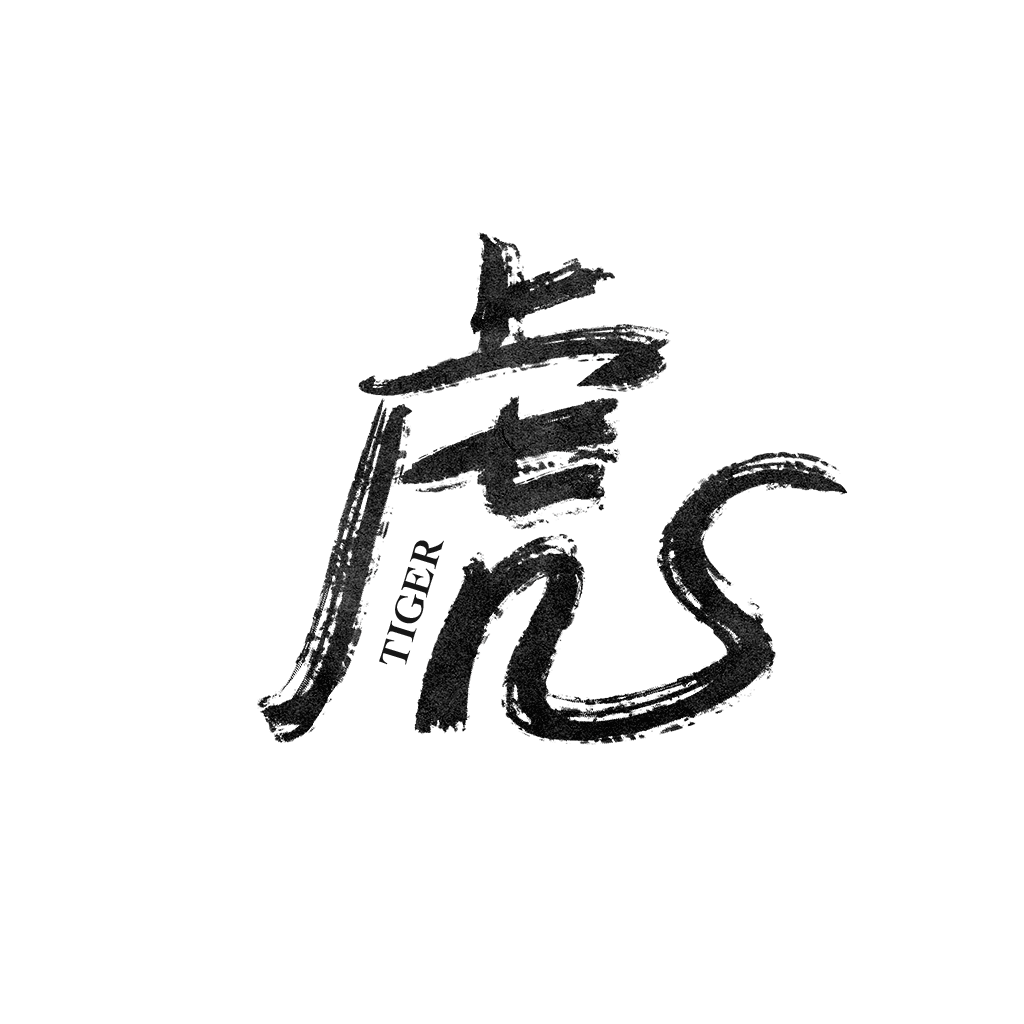 虎
TIGER